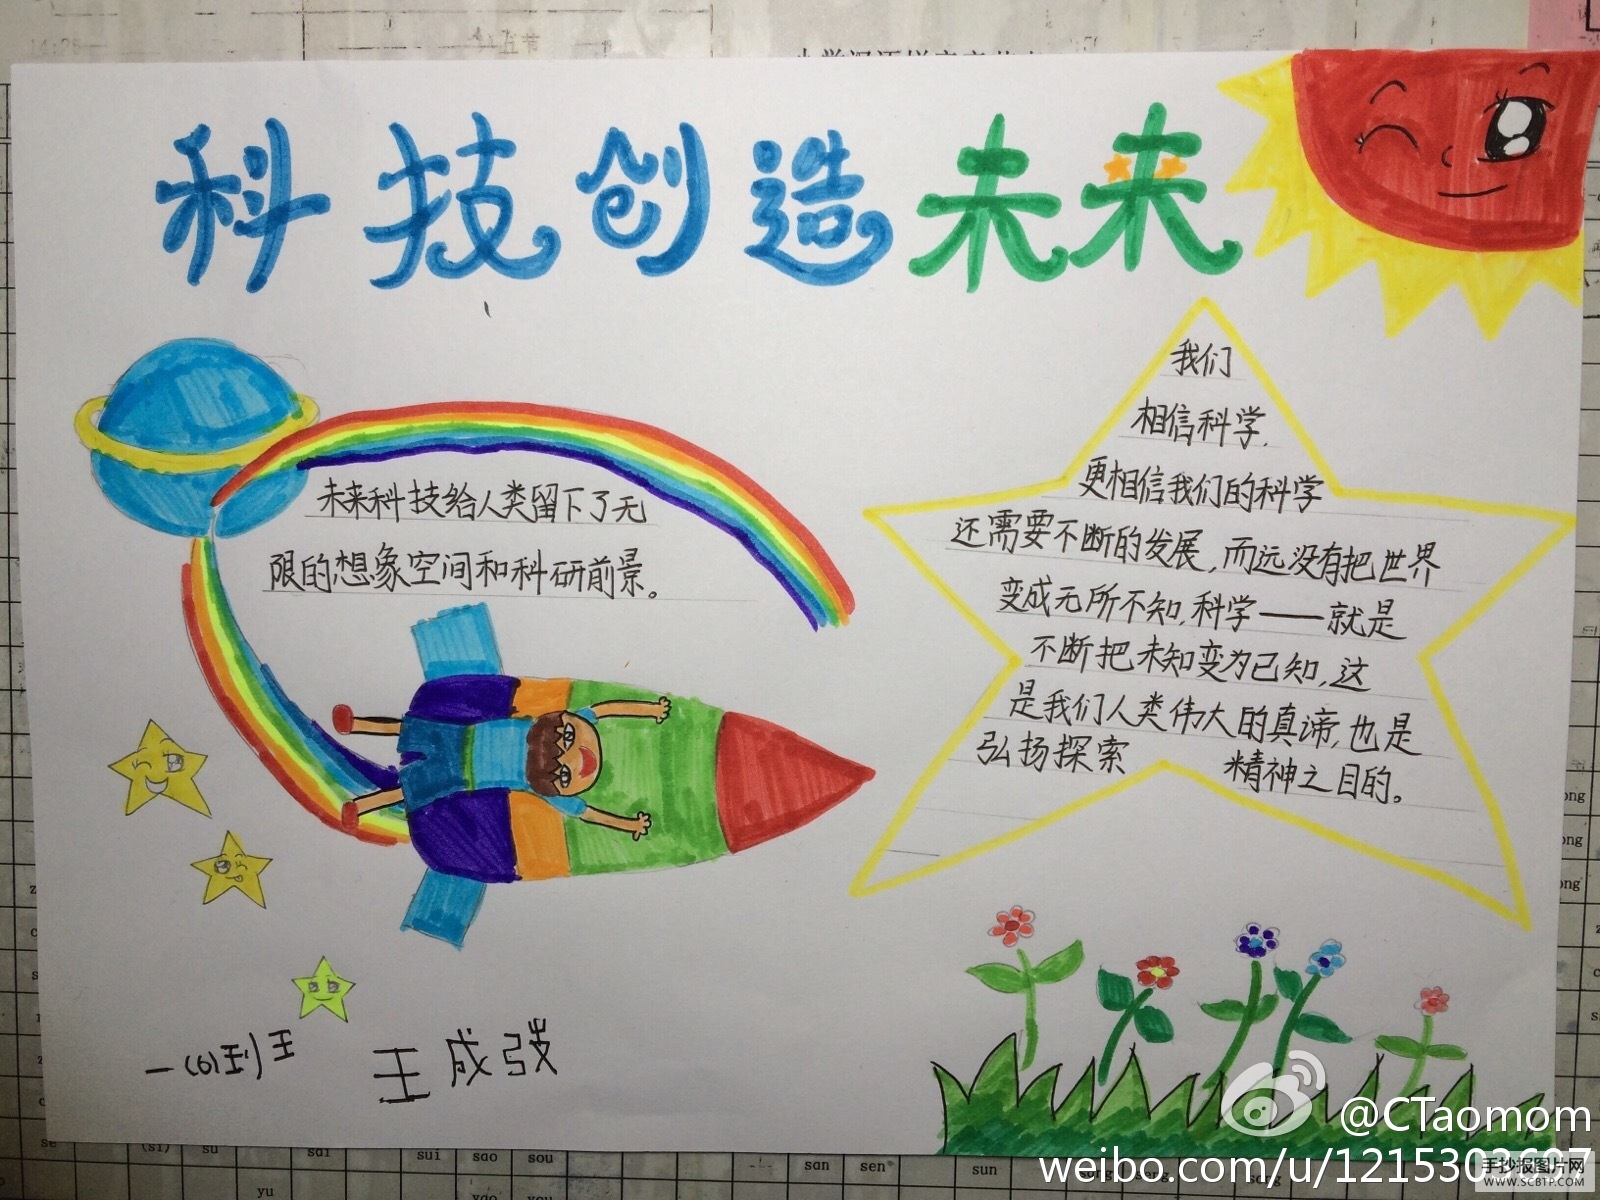 科技创造未来
我们
相信科学,
更相信我们的科学
还需要不断的发展,而远没有把世界
变成无所不知,科学——就是
不断把未知变为已知,这
是我们人类伟大的真谛,也是
弘扬探索 精神之目的。
未来科技给人类留下了无
限的想象空间和科研前景。
王成
@CTaomom
weibo.com/u/1215303607
手抄报图片网
WWW.SCBTP.COM
su
sai
sui
sao
sou
san
sen
sun
song
yu